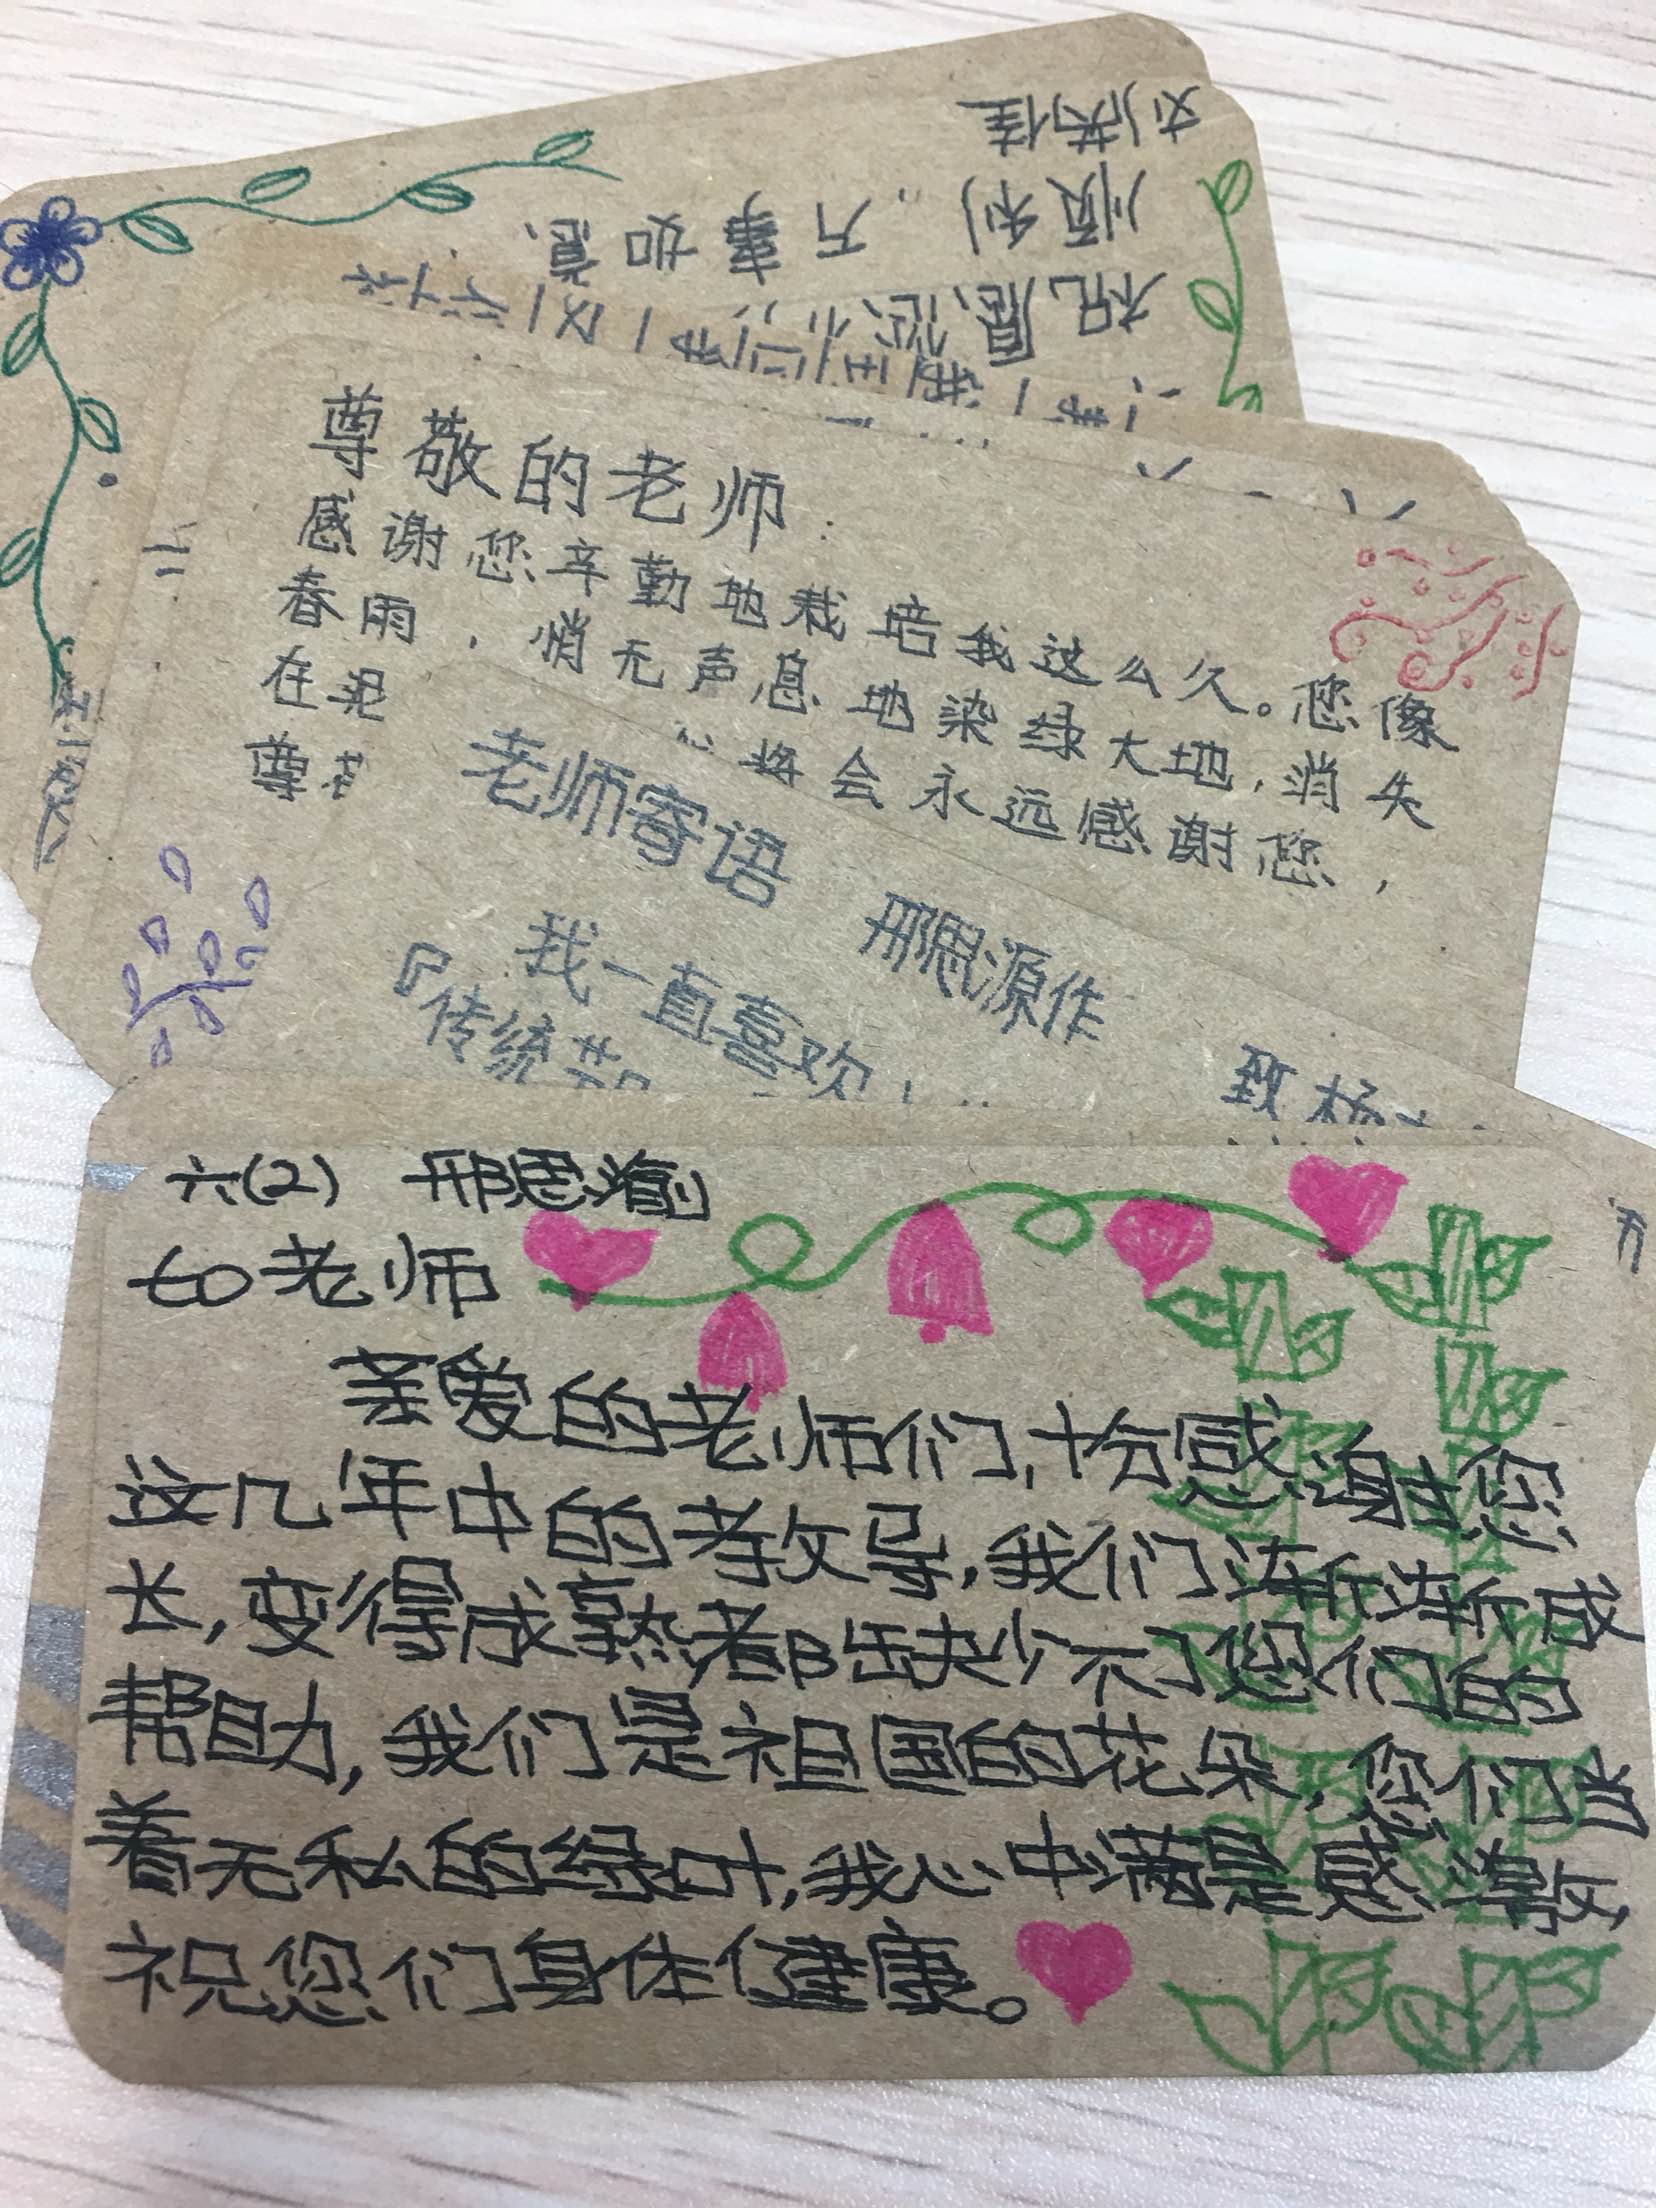 刘
佳
顺利，万事如意
祝愿您
尊敬的老师：
感谢您辛勤地栽培我这么久。您像
春雨，悄无声息地染绿大地，消失
在泥
将会永远感谢您，
尊
老师寄语
邢思源作
我一直喜欢
『传统节
致杨
六(2) 邢思
老师
亲爱的老师们，十分感谢您
这几年中的教导，我们渐渐成
长，变得成熟都缺少不了您们的
帮助，我们是祖国的花朵，您们当
着无私的绿叶，我心中满是感激，
祝您们身体健康。